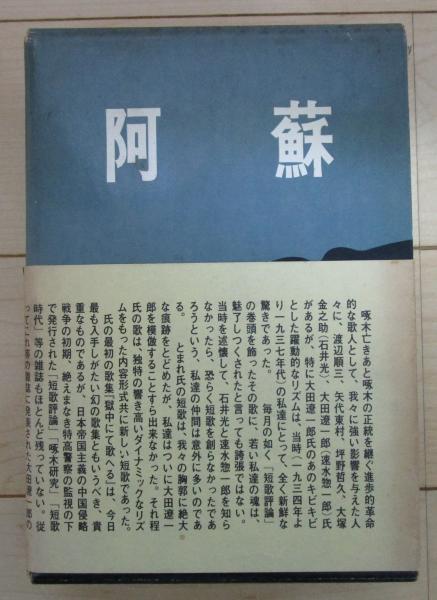 阿蘇
啄木亡きあと啄木の正統を継ぐ進歩的革命
的な歌人として、我々に強い影響を与えた人
々に、渡辺順三、矢代東村、坪野哲久、大塚
金之助(石井光)、大田遼一郎(速水惣一郎)氏
があるが、特に大田遼一郎氏のあのキビキビ
とした躍動的なリズムは、当時(一九三四年よ
り一九三七年代)の私達にとって、全く新鮮な
驚きであった。 毎月の如く「短歌評論」
の巻頭を飾ったその歌に、若い私達の魂は、
魅了しつくされたと言っても誇張ではない。
当時を述懐して、石井光と速水惣一郎を知ら
なかったら、恐らく短歌を創らなかったであ
ろうという、私達の仲間は意外に多いのであ
る。 とまれ氏の短歌は、我々の胸郭に絶大
な痕跡をとどめたが、私達はついに大田遼一
郎を模倣することすら出来なかった。それ程
氏の歌は、独特の響き高いダイナミックなリズ
ムをもった内容形式共に新しい短歌であった。
氏の最初の歌集『獄中にて歌へる』は、今日
最も入手しがたい幻の歌集ともいうべき、貴
重なものであるが、日本帝国主義の中国侵略
戦争の初期、絶えまなき特高警察の監視の下
で発行された「短歌評論」「啄木研究」「短歌
時代」等の雑誌もほとんど残っていない。従
ってこれ等の雑誌に発表された大田遼一郎の